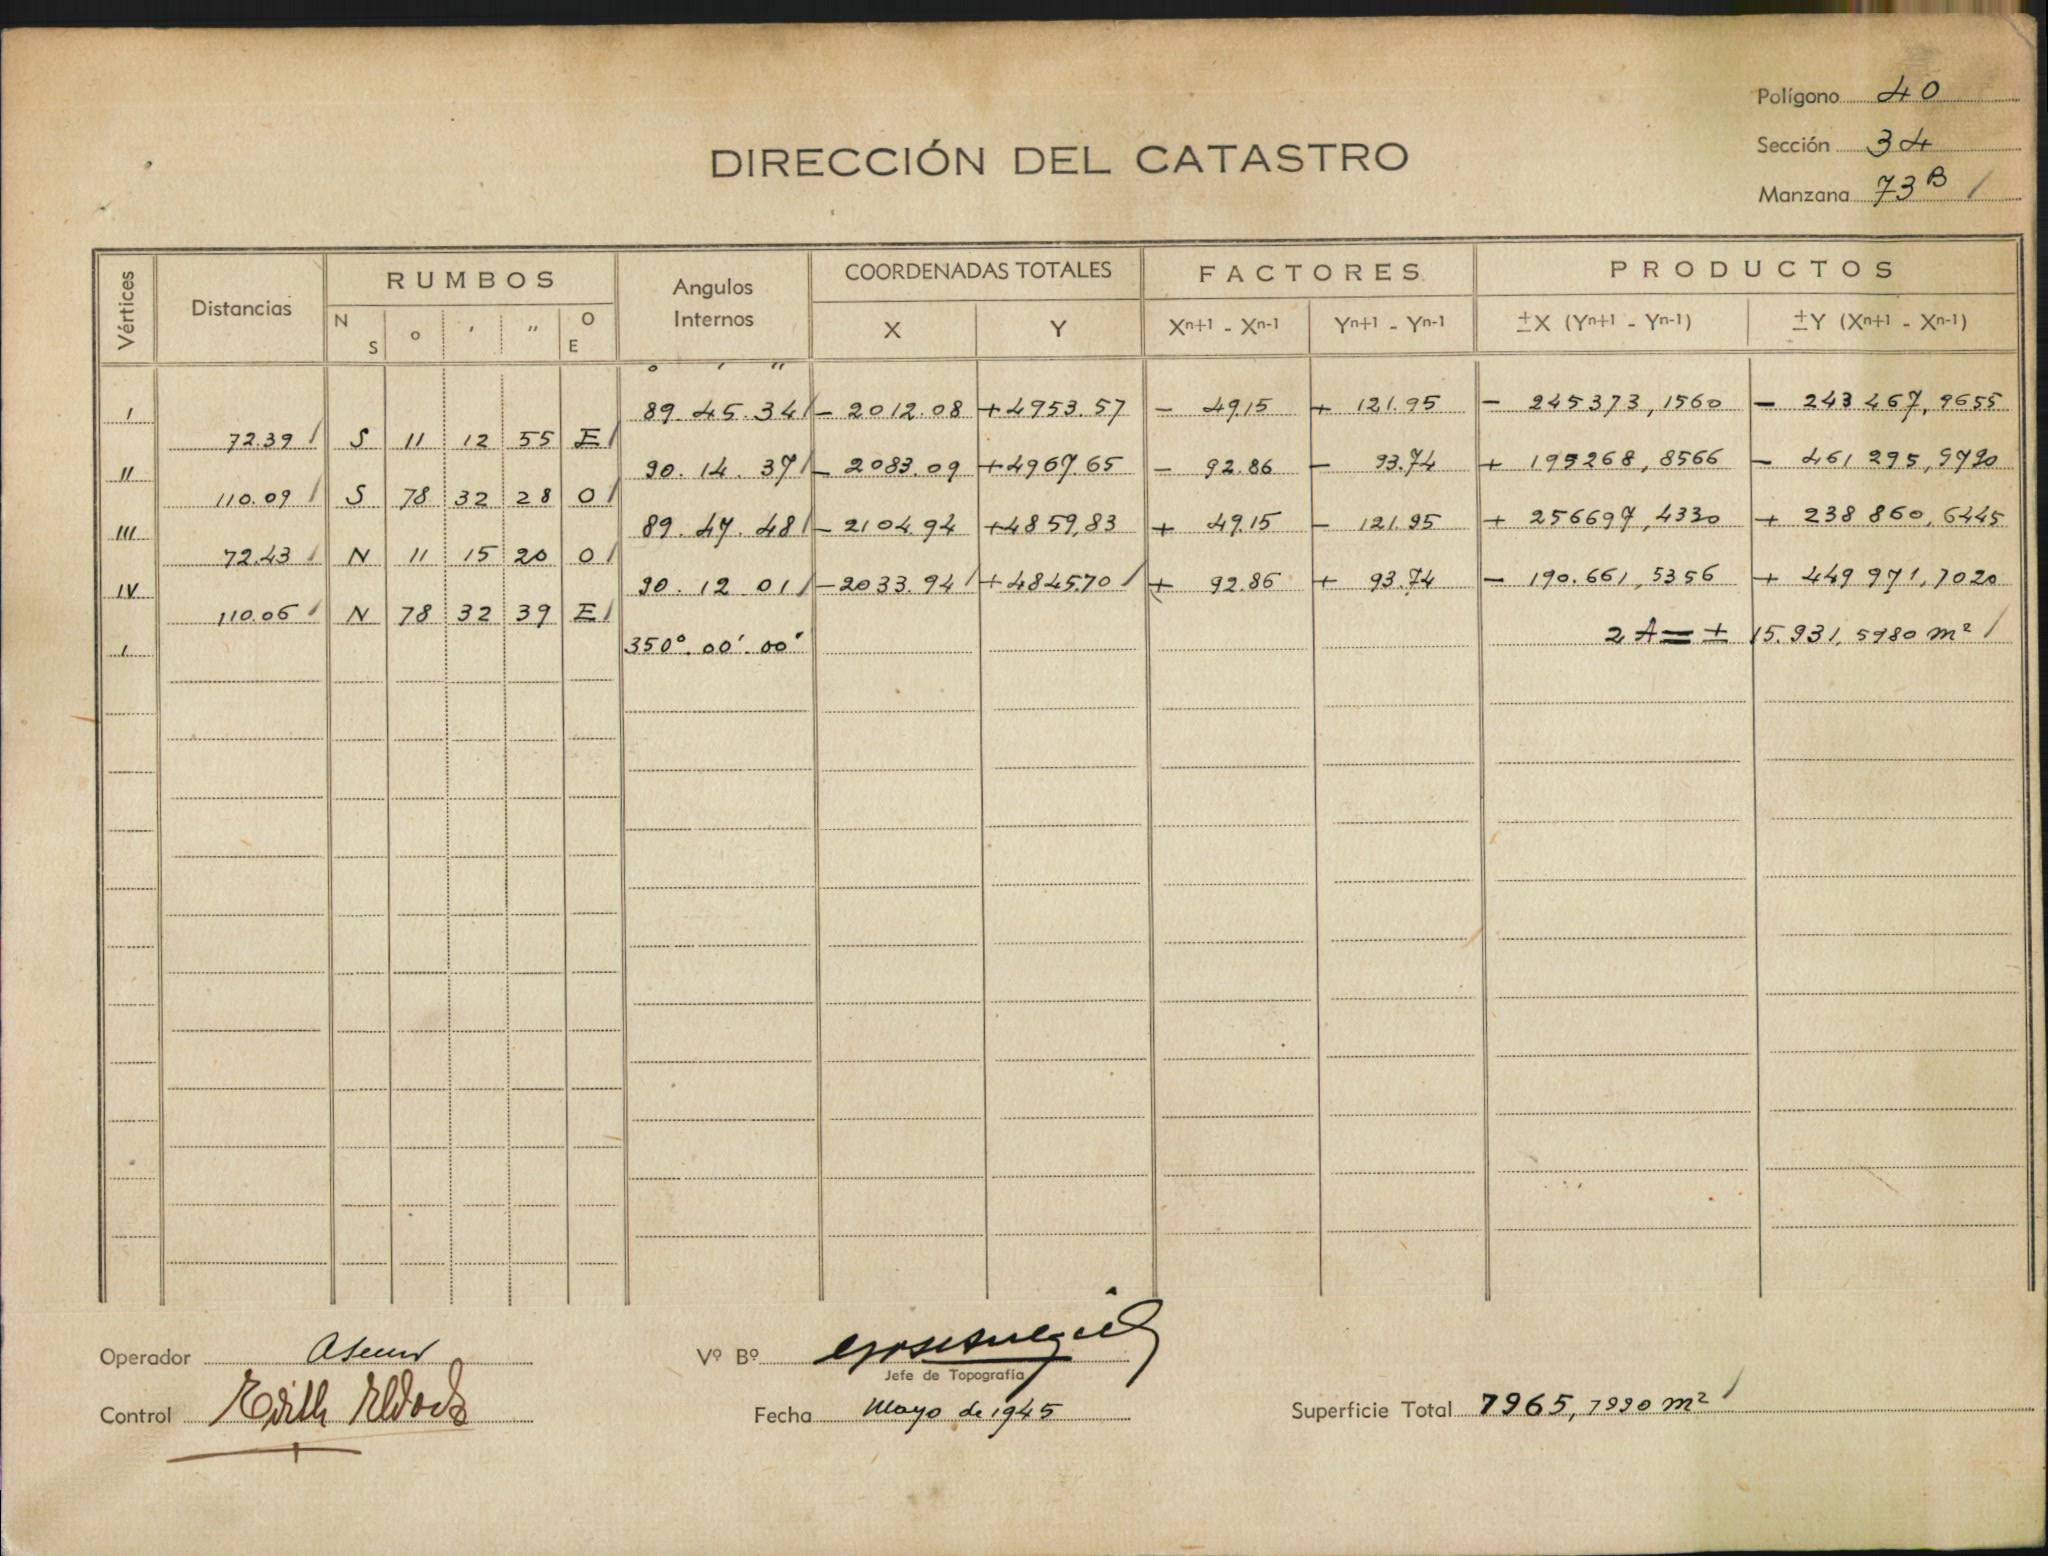 Polígono 40
Sección 34
Manzana 73 B /
DIRECCIÓN DEL CATASTRO
Vértices Distancias RUMBOS Angulos Internos COORDENADAS TOTALES FACTORES PRODUCTOS
N S o ' " O E X Y Xn+1 - Xn-1 Yn+1 - Yn-1 ±X (Yn+1 - Yn-1) ±Y (Xn+1 - Xn-1)
o ' "
I 89.45.34/ - 2012.08 +4953.57 - 49.15 + 121.95 - 245373,1560 - 243467,9655
72.39 / S 11 12 55 E/
II 90.14.37/ - 2083.09 +4967.65 - 92.86 - 93.74 + 195268,8566 - 461295,9790
110.09 / S 78 32 28 O/
III 89.47.48/ - 2104.94 +4859,83 + 49.15 - 121.95 + 256697,4330 + 238860,6445
72.43 / N 11 15 20 O/
IV 90.12.01/ -2033.94/ +4845.70/ + 92.86 + 93.74 - 190.661,5356 + 449971,7020
110.06 / N 78 32 39 E/
I 350°.00'.00" 2A = ± 15.931,5980 m² /
Operador
Vº Bº
Jefe de Topografía
Control Edith
Fecha Mayo de 1945
Superficie Total 7965,7990 m² /